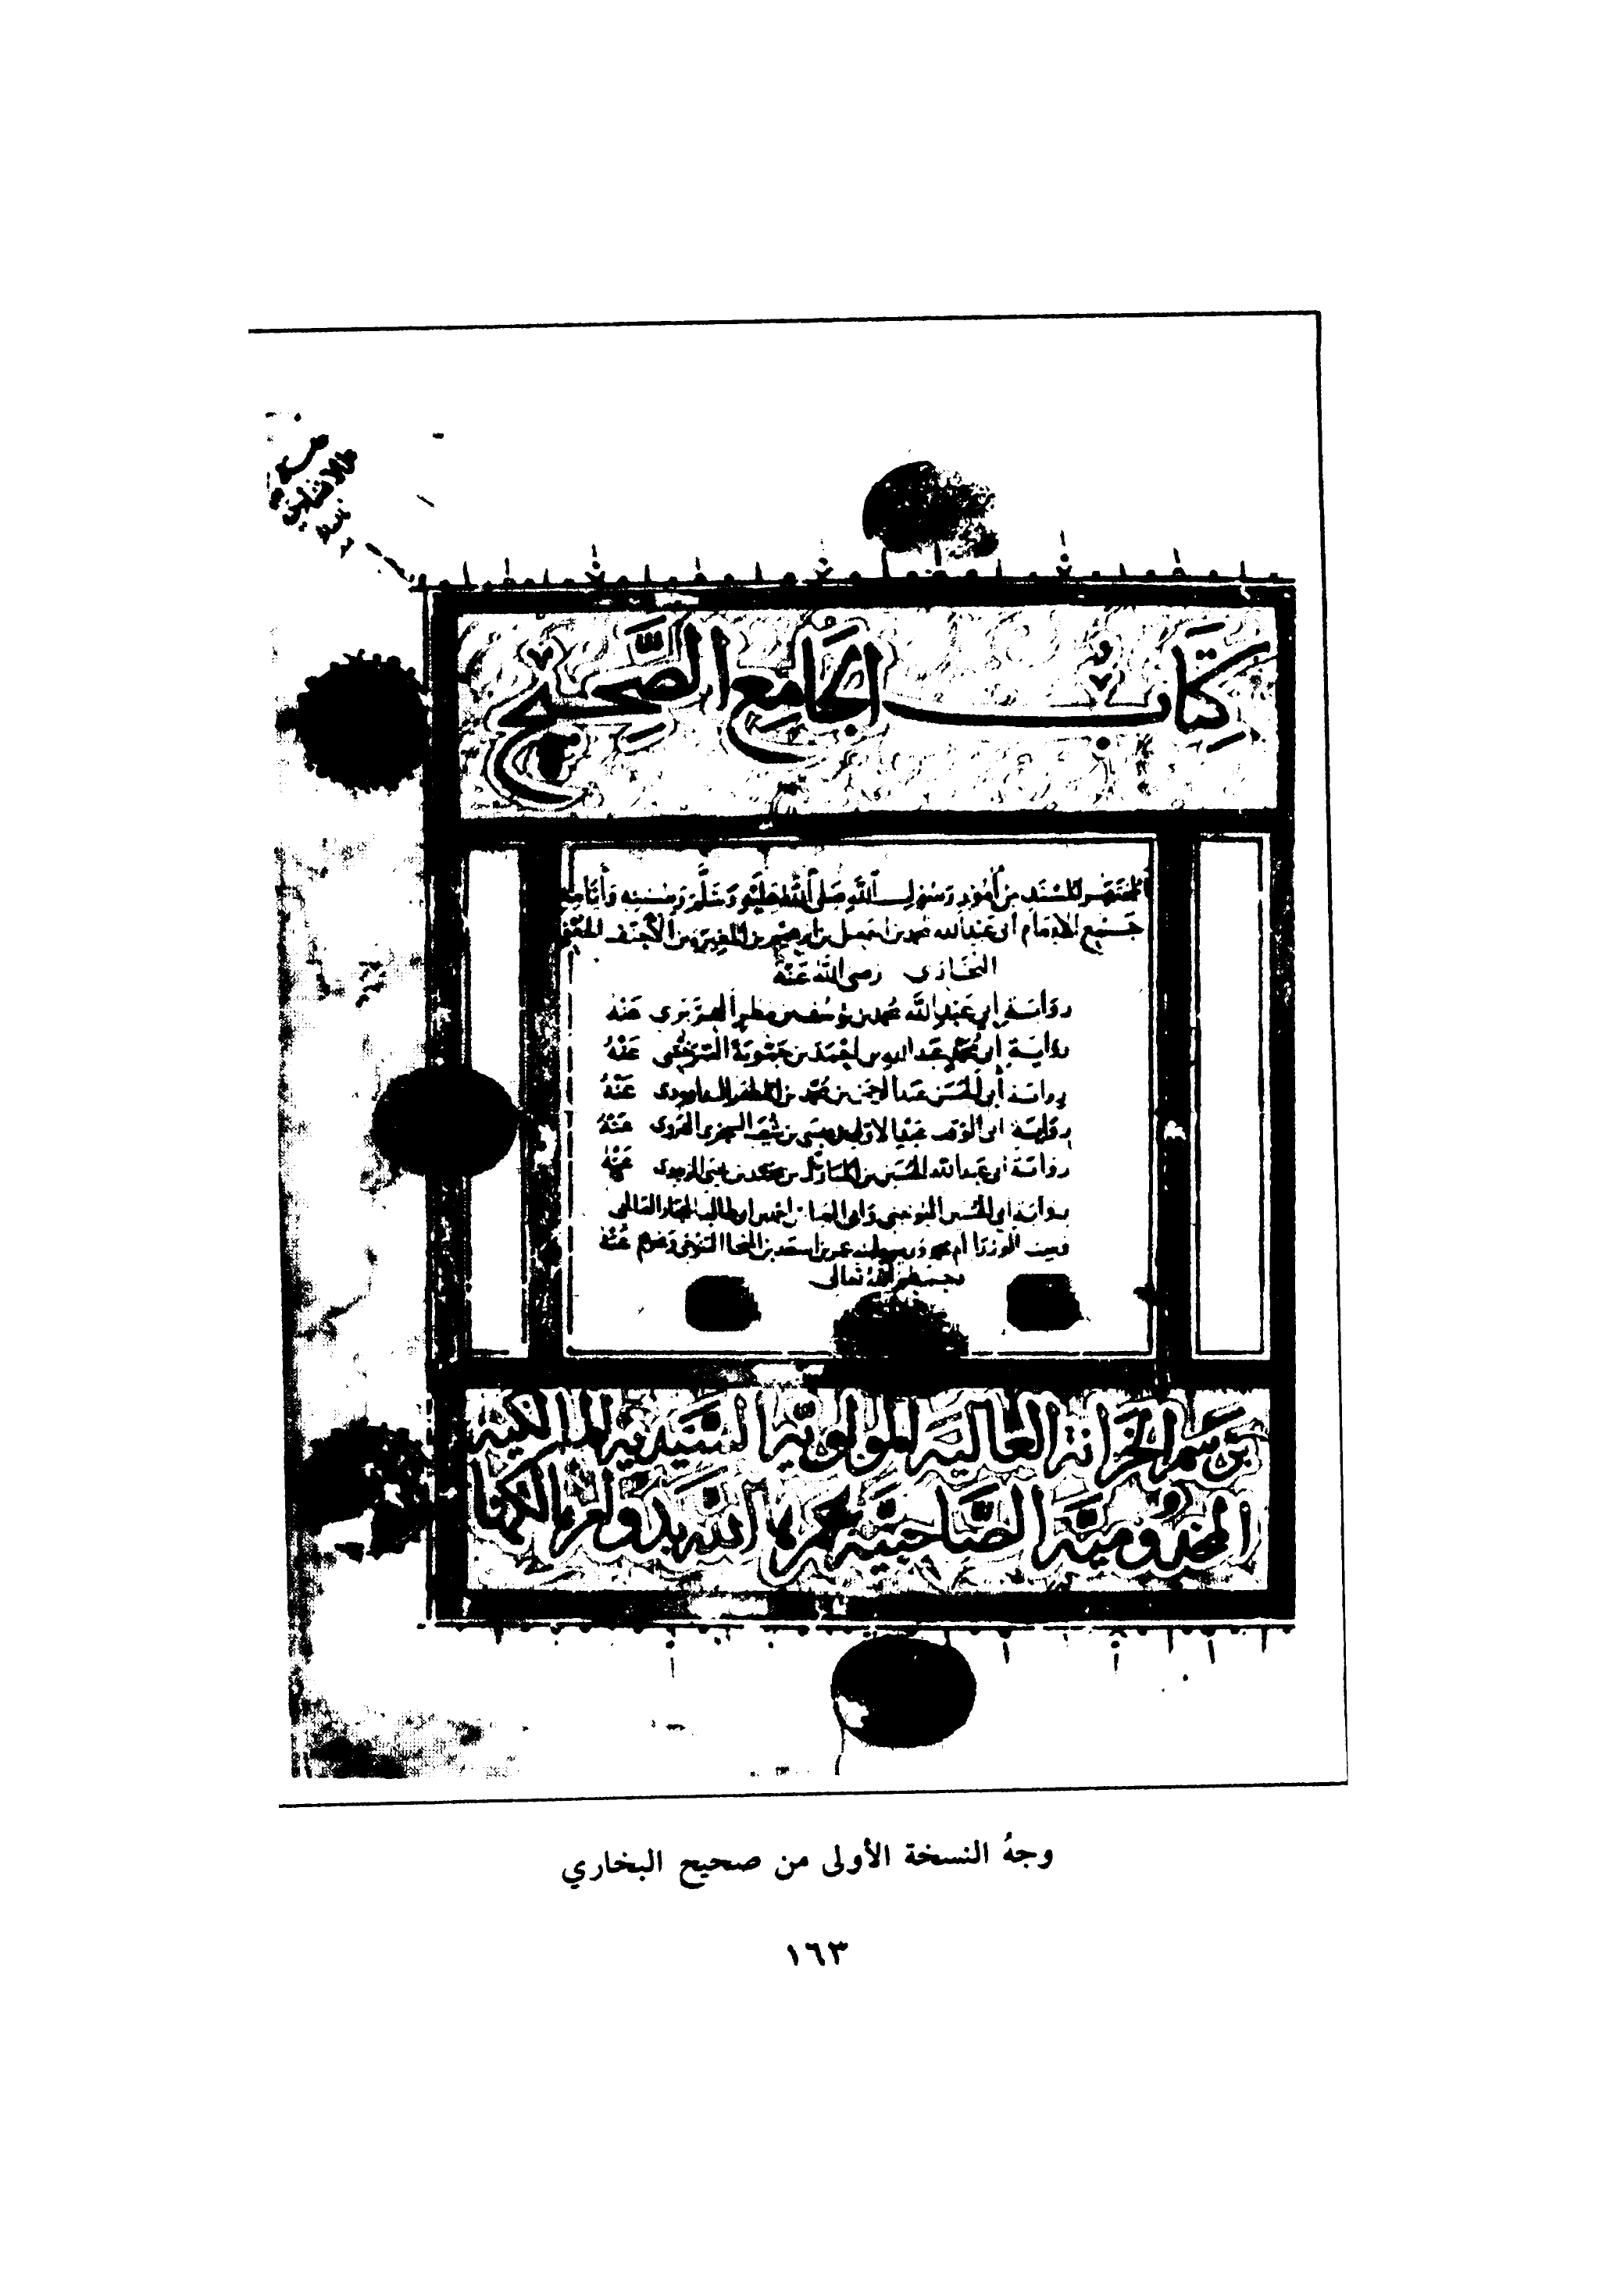 كِتَابُ الجَامِعِ الصَّحِيحِ
المختصر المسند من أمور رسول الله صلى الله عليه وسلم وسننه وأيامه
جمع الإمام أبي عبد الله محمد بن إسمعيل بن إبرهيم بن المغيرة بن الأحنف الجعفي
البخاري رضي الله عنه
رواية أبي عبد الله محمد بن يوسف بن مطر الفربري عنه
رواية أبي محمد عبد الله بن أحمد بن حمويه السرخسي عنه
رواية أبي الحسن عبد الرحمن بن محمد بن المظفر الداوودي عنه
رواية أبي الوقت عبد الأول بن عيسى بن شعيب السجزي الهروي عنه
رواية أبي عبد الله الحسين بن المبارك بن محمد بن يحيى الزبيدي عنه
رواية أبي الحسين اليونيني وأبي العباس أحمد بن أبي طالب الحجار الصالحي
وست الوزرا أم محمد عمر بن أسعد بن المنجا التنوخي وغيرهم عنه
رحمهم الله تعالى
برسم الخزانة العالية المولوية السيدية المالكية
المخدومية الصاحبية عمرها الله ببدوام مالكها
وجهُ النسخة الأولى من صحيح البخاري
١٦٣